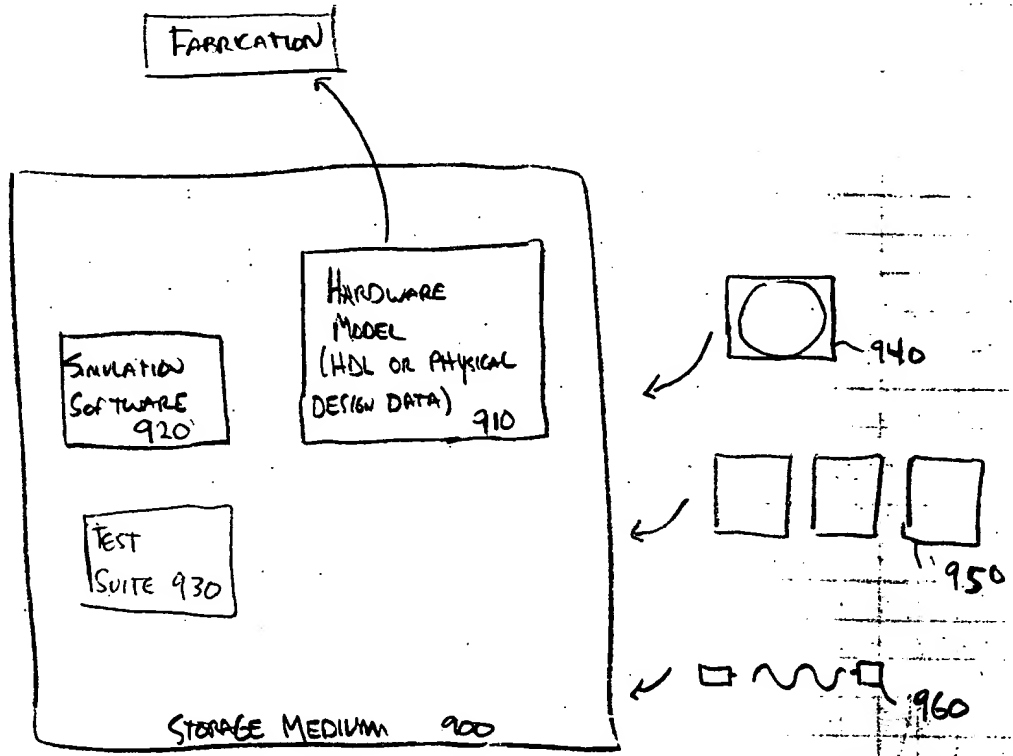 FABRICATION
HARDWARE
MODEL
(HDL OR PHYSICAL
DESIGN DATA)
910
SIMULATION
SOFTWARE
920
940
TEST
SUITE 930
950
960
STORAGE MEDIUM 900